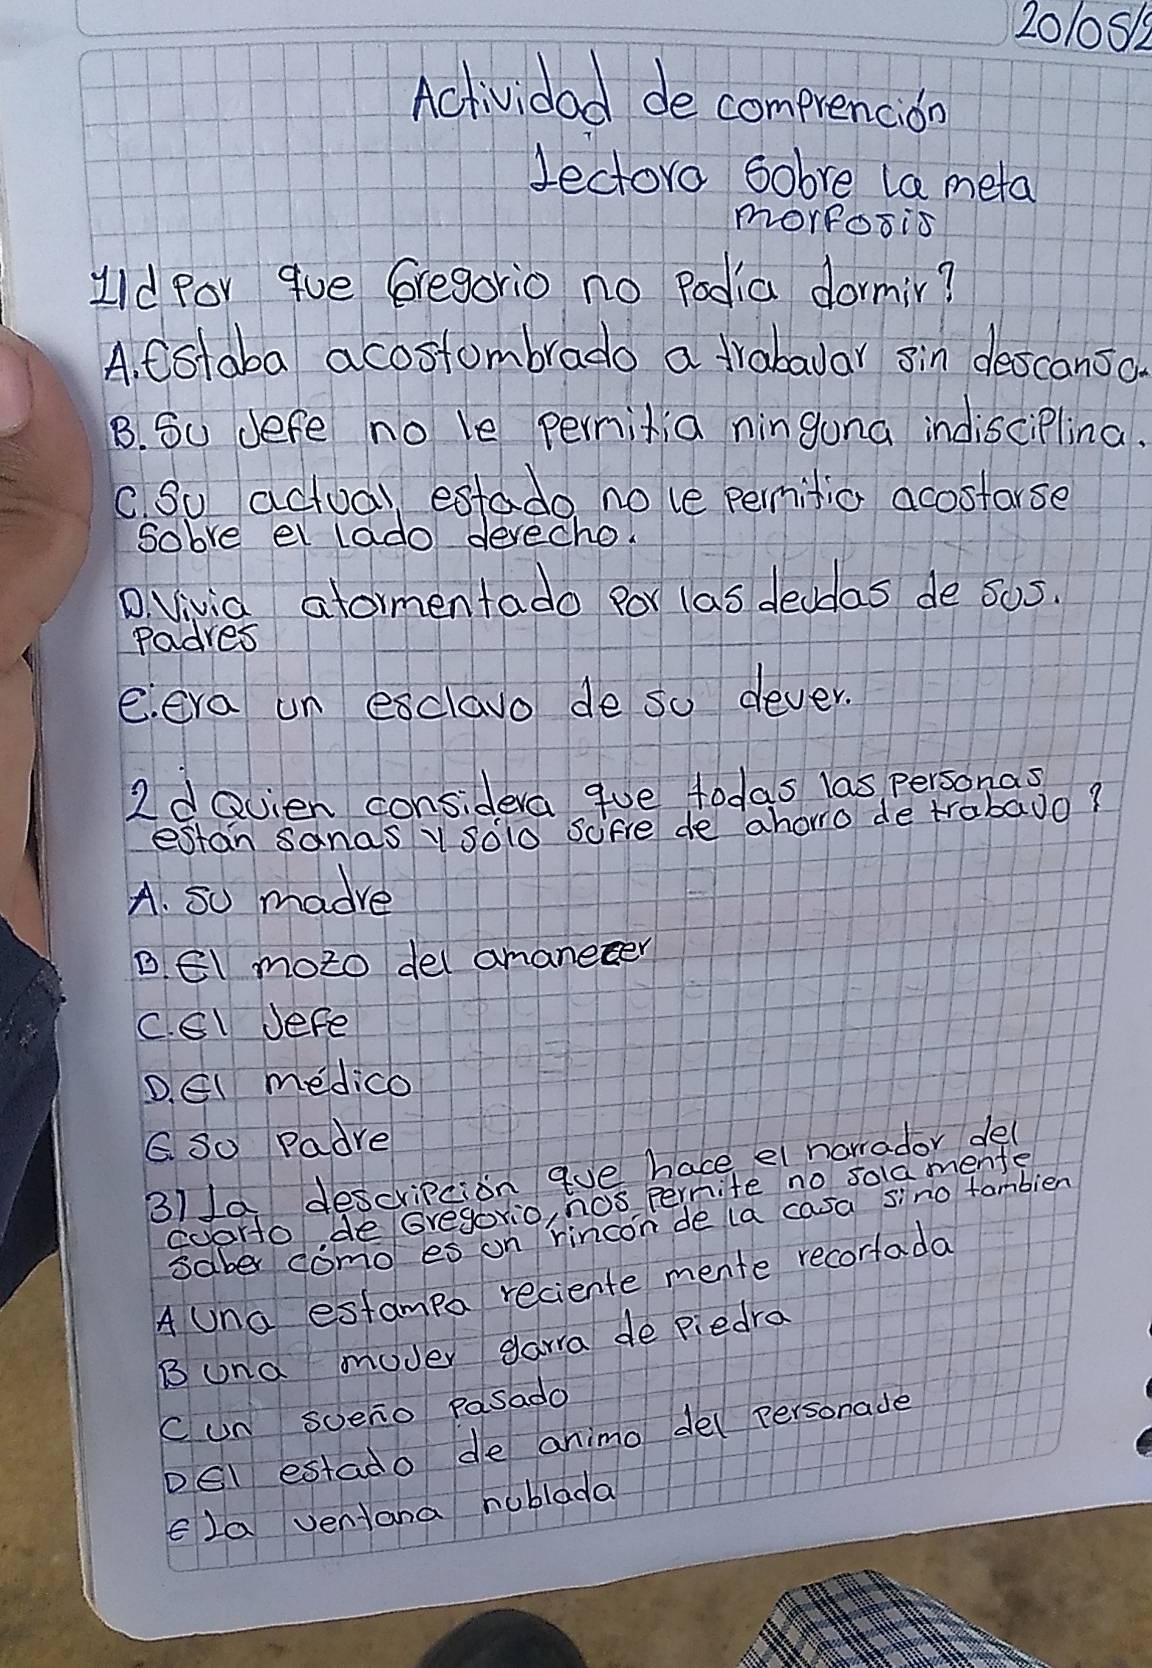 20/05/2
Actividad de comprención
Lectora sobre la meta
morfosis
1) ¿Por que Gregorio no Podía dormir?
A. Estaba acostombrado a trabaJar sin descanso.
B. Su Jefe no le permitia ninguna indisciplina.
C. Su actual estado no le permitio acostarse
sobre el lado derecho.
D. Vivia atormentado por las deudas de sus.
Padres
E. Era un esclavo de su dever.
2 ¿Quien considera que todas las personas
están sanas y sólo sufre de ahorro de trabaJo?
A. su madre
B. El mozo del amanecer
C. El Jefe
D. El médico
E su Padre
3) La descripción que hace el narrador del
cuarto de Gregorio, nos permite no sola mente
saber cómo es un rincón de la casa sino tambien
A Una estampa reciente mente recortada
B una muJer garra de piedra
C un sueño pasado
D El estado de animo del personaJe
E La ventana nublada